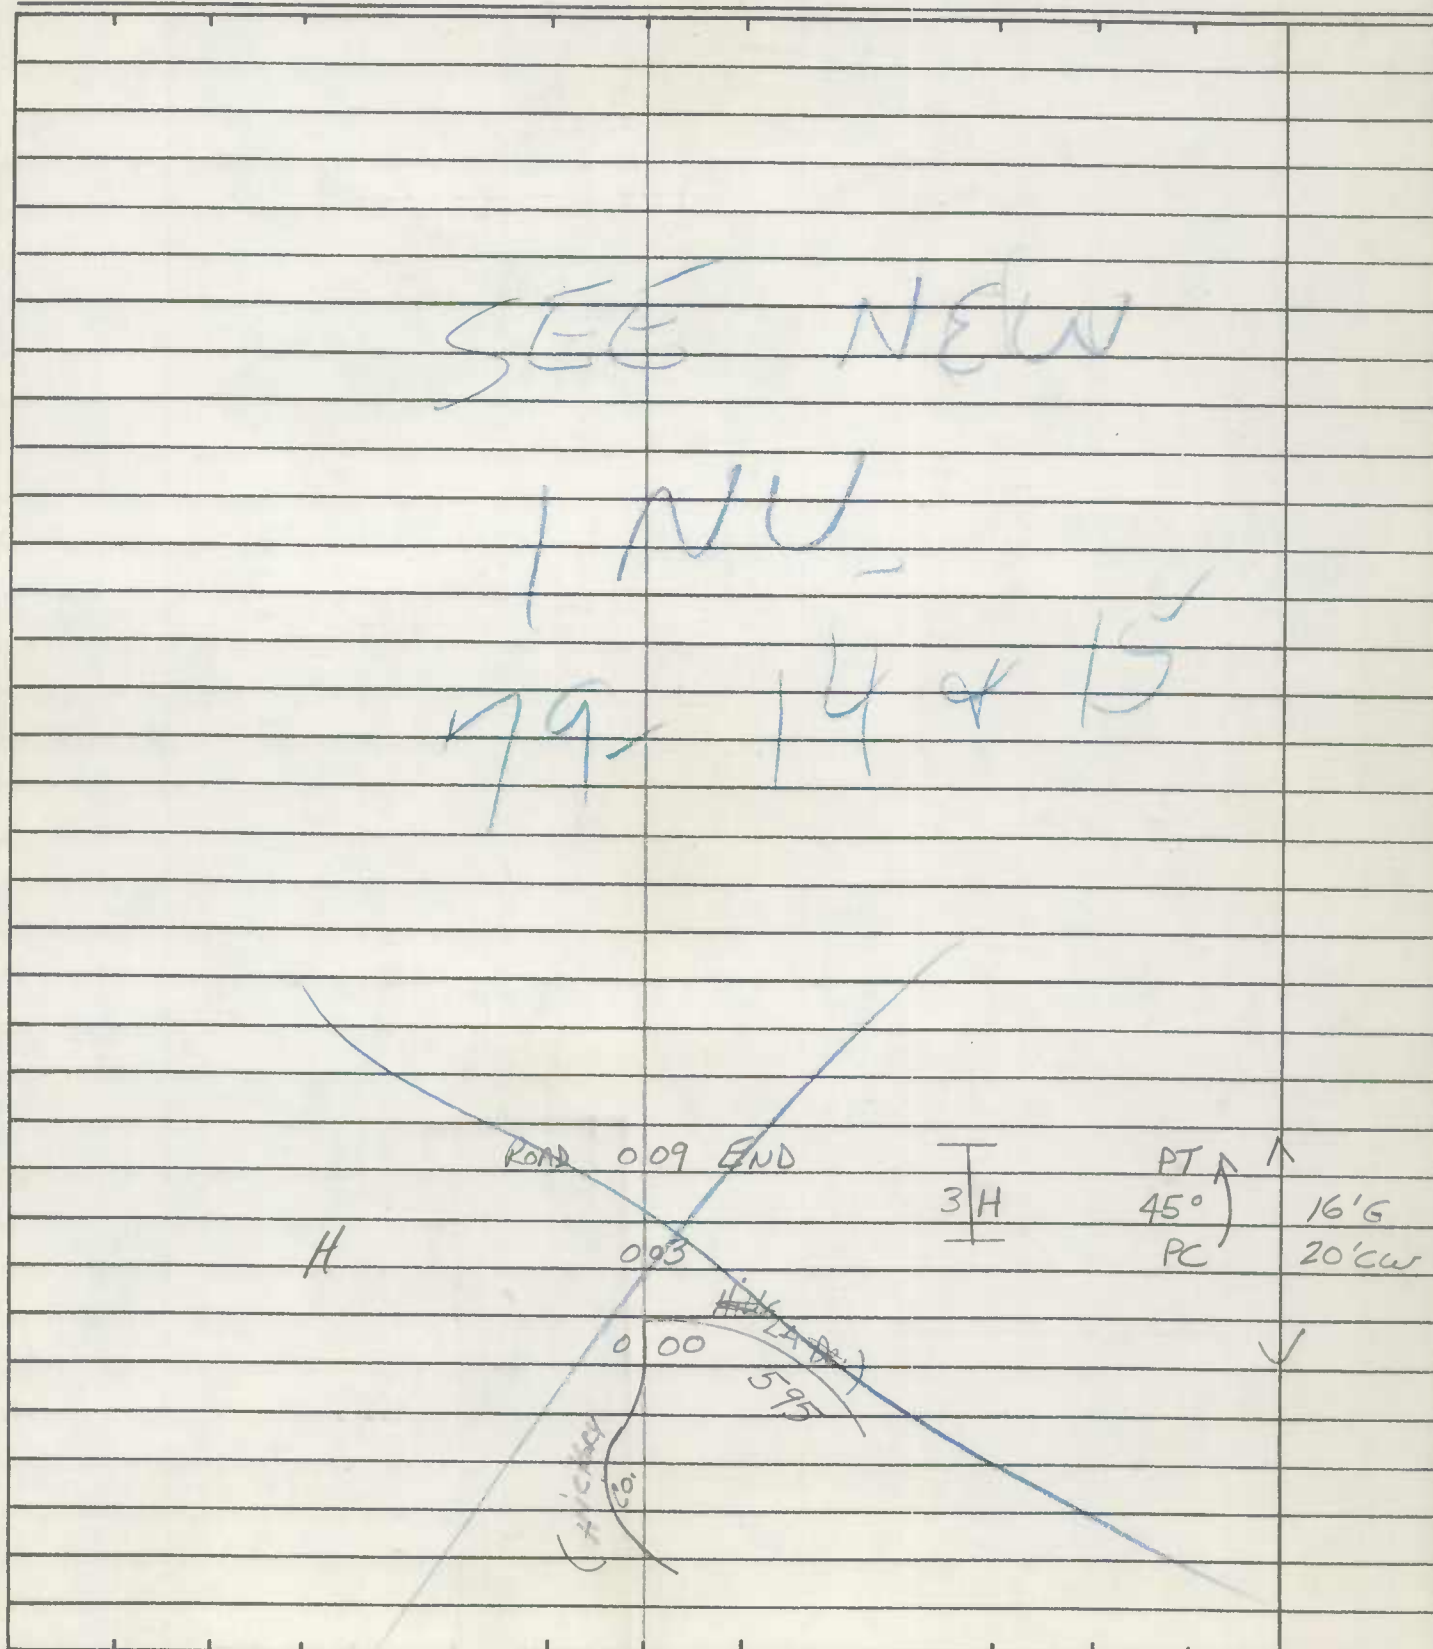 SEE NEW
INV.
79- 14 & 15
ROAD 0 09 END
3 H
PT
45°
PC
16'G
20'CW
H
0 03
0 00
595
(HICKORY
CO.